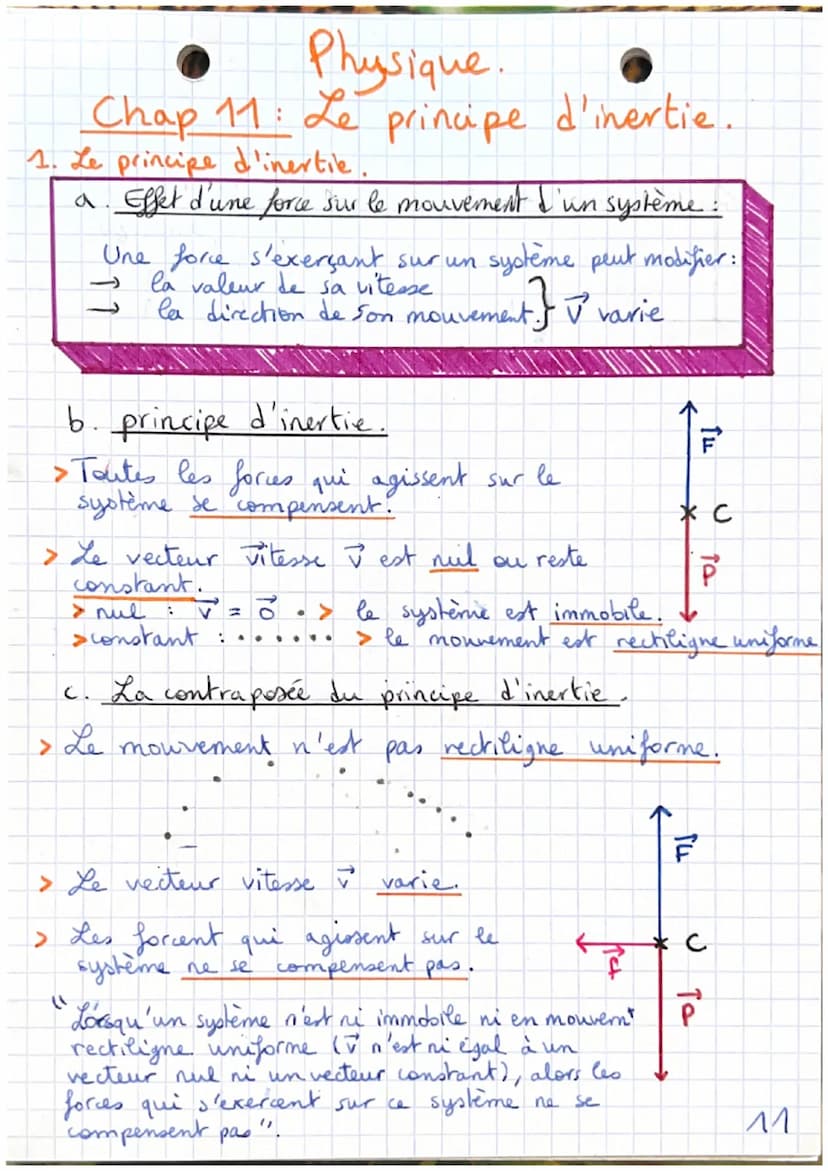 Physique.
Chap 11 : Le principe d'inertie.
1. Le principe d'inertie.
a. Effet d'une force sur le mouvement d'un système :
Une force s'exerçant sur un système peut modifier :
→ la valeur de sa vitesse
→ la direction de son mouvement. } V⃗ varie
b. principe d'inertie.
F⃗
> Toutes les forces qui agissent sur le
système se compensent.
C
> Le vecteur vitesse v⃗ est nul ou reste
P⃗
constant.
> nul : v⃗ = 0⃗ . > le système est immobile.
> constant : ...... > le mouvement est rectiligne uniforme
c. La contraposée du principe d'inertie.
> Le mouvement n'est pas rectiligne uniforme.
F⃗
> Le vecteur vitesse v⃗ varie.
> Les forcent qui agissent sur le
C
f⃗
système ne se compensent pas.
"Lorsqu'un système n'est ni immobile ni en mouvemt
P⃗
rectiligne uniforme (v⃗ n'est ni égal à un
vecteur nul ni un vecteur constant), alors les
forces qui s'exercent sur ce système ne se
compensent pas".
11